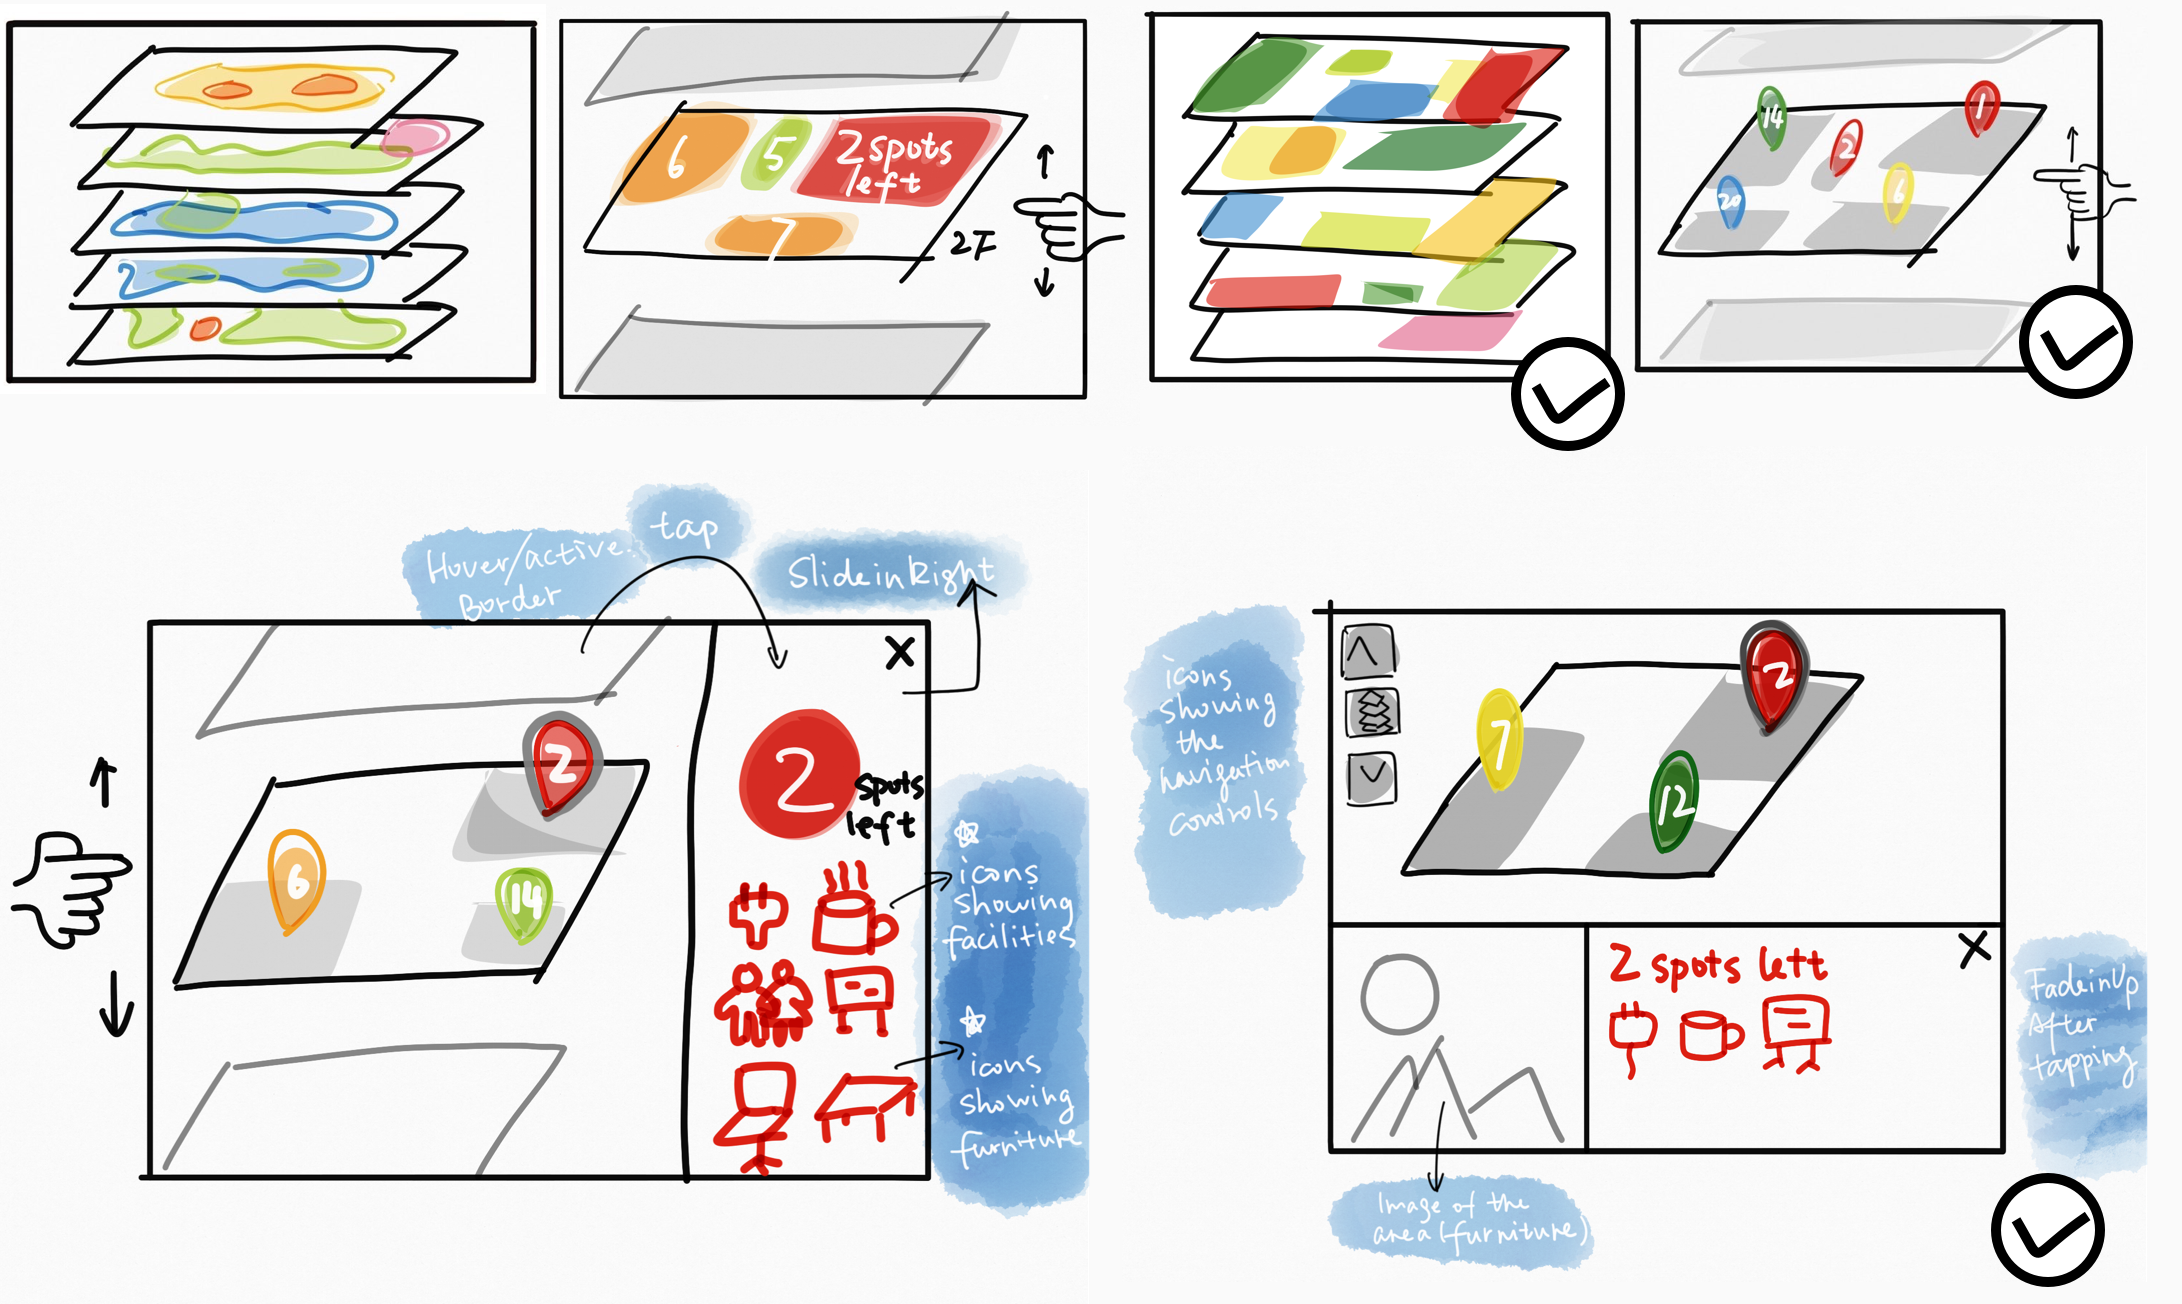 6
5
2 spots
left
7
2F
14
1
2
20
6
Hover/active
Border
tap
SlideinRight
X
2
6
14
2
spots
left
icons
showing
facilities
icons
showing
furniture
icons
showing
the
navigation
controls
7
2
12
2 spots left
X
FadeinUp
After
tapping
Image of the
area(furniture)